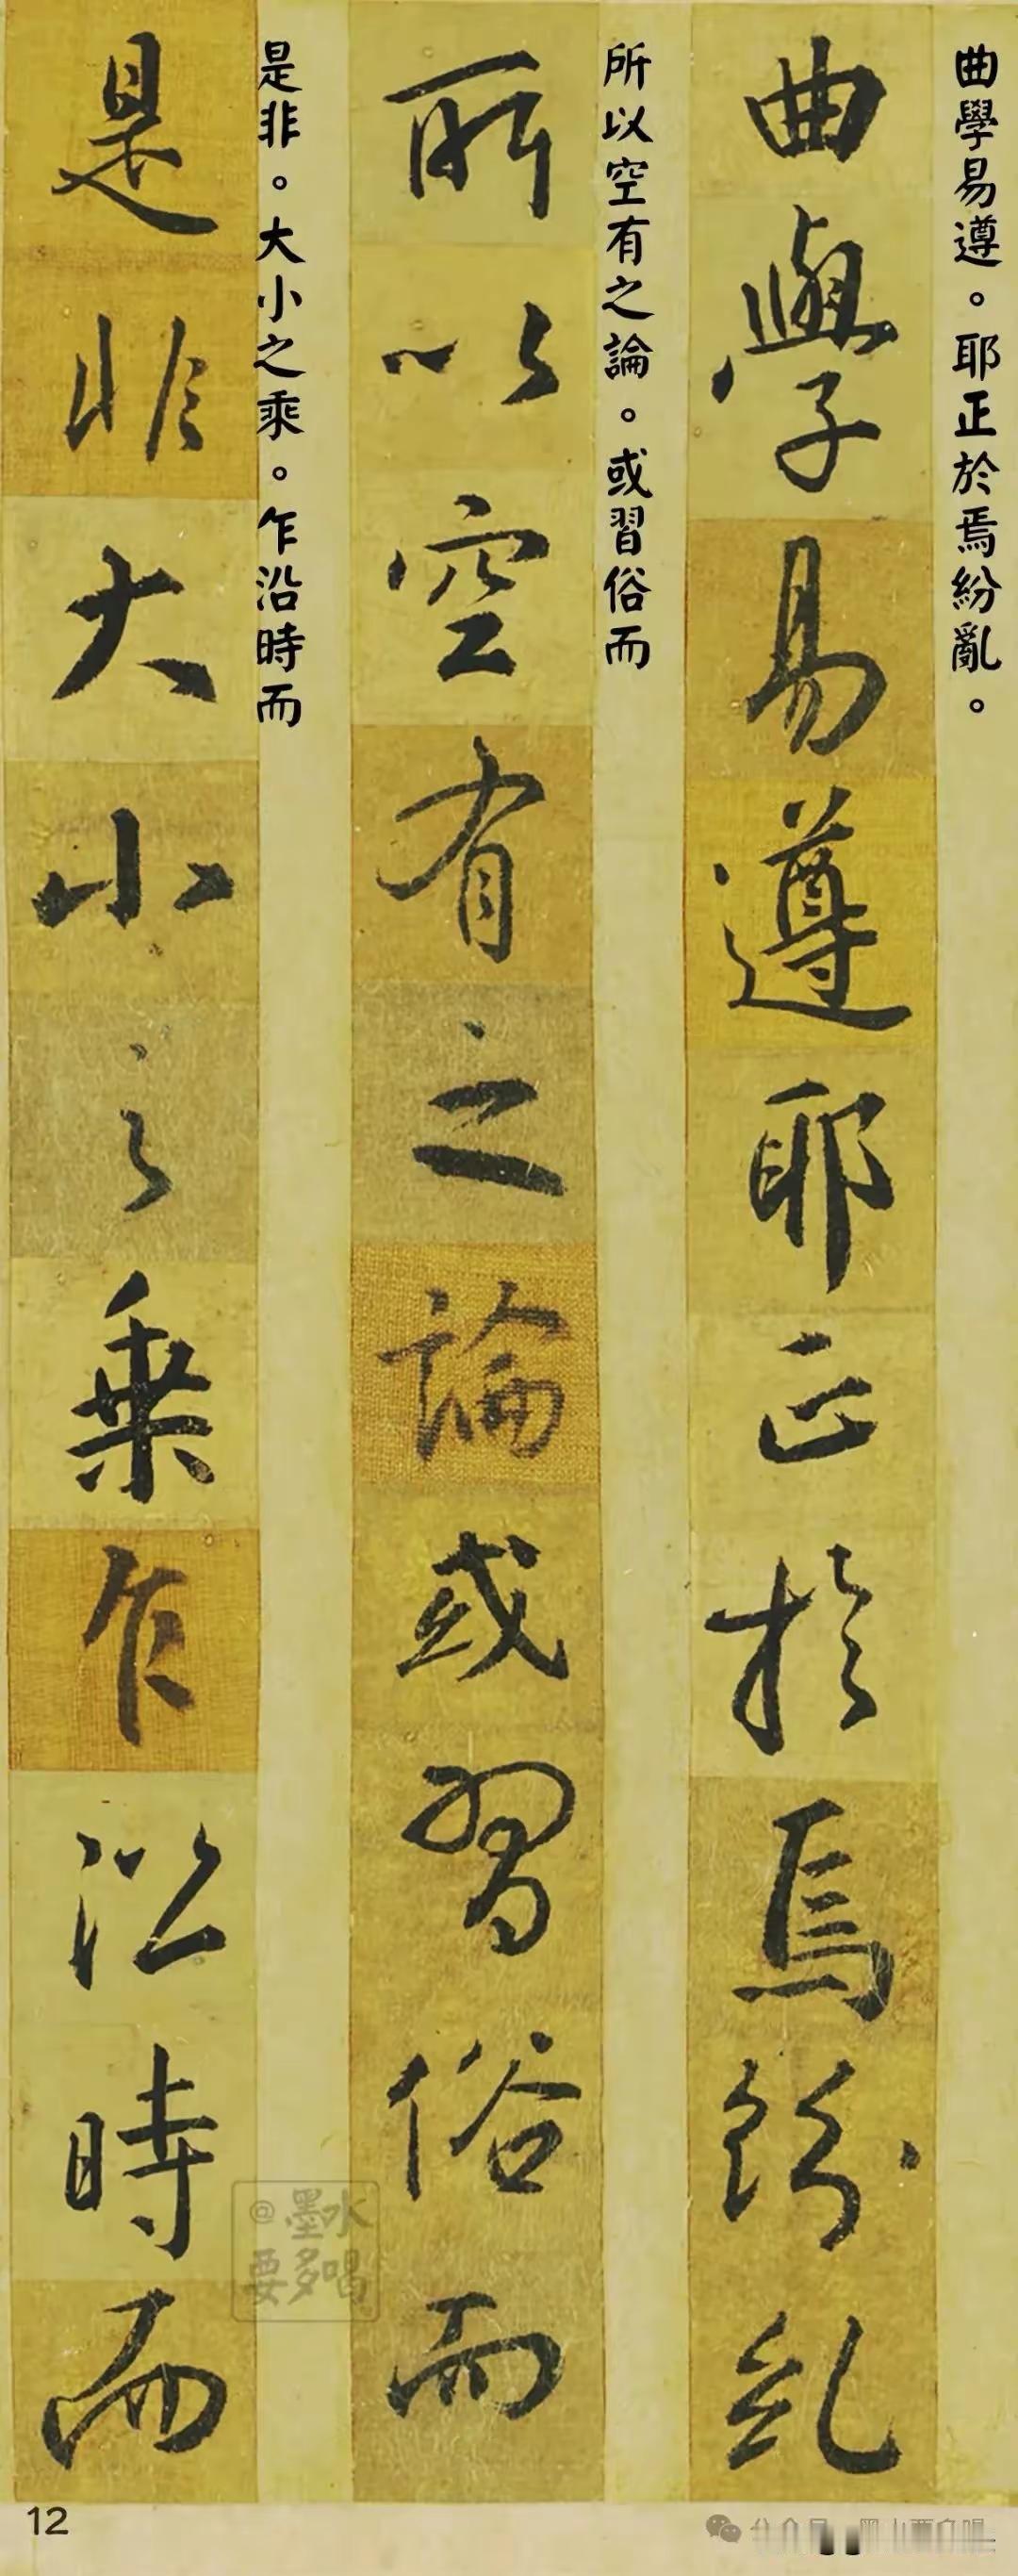 曲學易遵。耶正於焉紛亂。
曲學易遵耶正於焉紛亂
所以空有之論。或習俗而
所以空有之論或習俗而
是非。大小之乘。乍沿時而
是非大小之乘乍沿時而
@墨水
要多喝
12